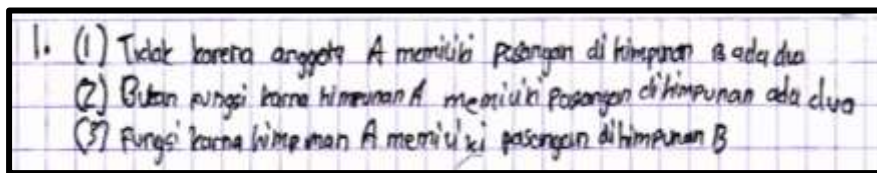 1. (1) Tidak karena anggota A memiliki pasangan di himpunan B ada dua
(2) Bukan fungsi karna himpunan A memiliki pasangan dihimpunan ada dua
(3) Fungsi karna himpunan A memiliki pasangan dihimpunan B